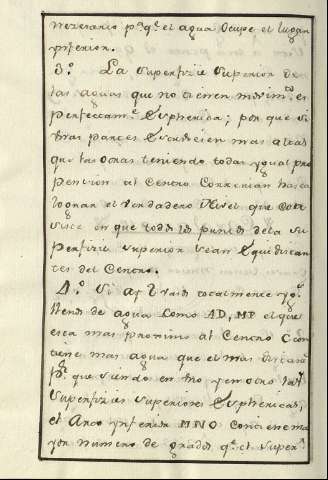 nezesario pᵃ qᵉ el agua Ocupe el lugar
ynferior.
3.º La superfizie superior de
las aguas que no tienen movimᵗᵒ es
perfectamᵗᵉ Espherica; por que si
unas partes estubiesen mas altas
que las otras teniendo todas ygual pro
pension al Centro Correrian hasta
lograr el verdadero Nivel que con
siste en que todos los puntos dela su
perfizie superior sean Equidistan
tes del Centro.
4.º Si ay 2 vasos totalmente yg.ˢ
llenos de agua como AD, MP el que
esta mas proximo al Centro C con
tiene mas agua que el mas distante
Pʳ que siendo en ambos las
superfizies superiores Esphericas,
el Arco ynferior MNO Contiene ma
yor numero de grados qᵉ el superʳ